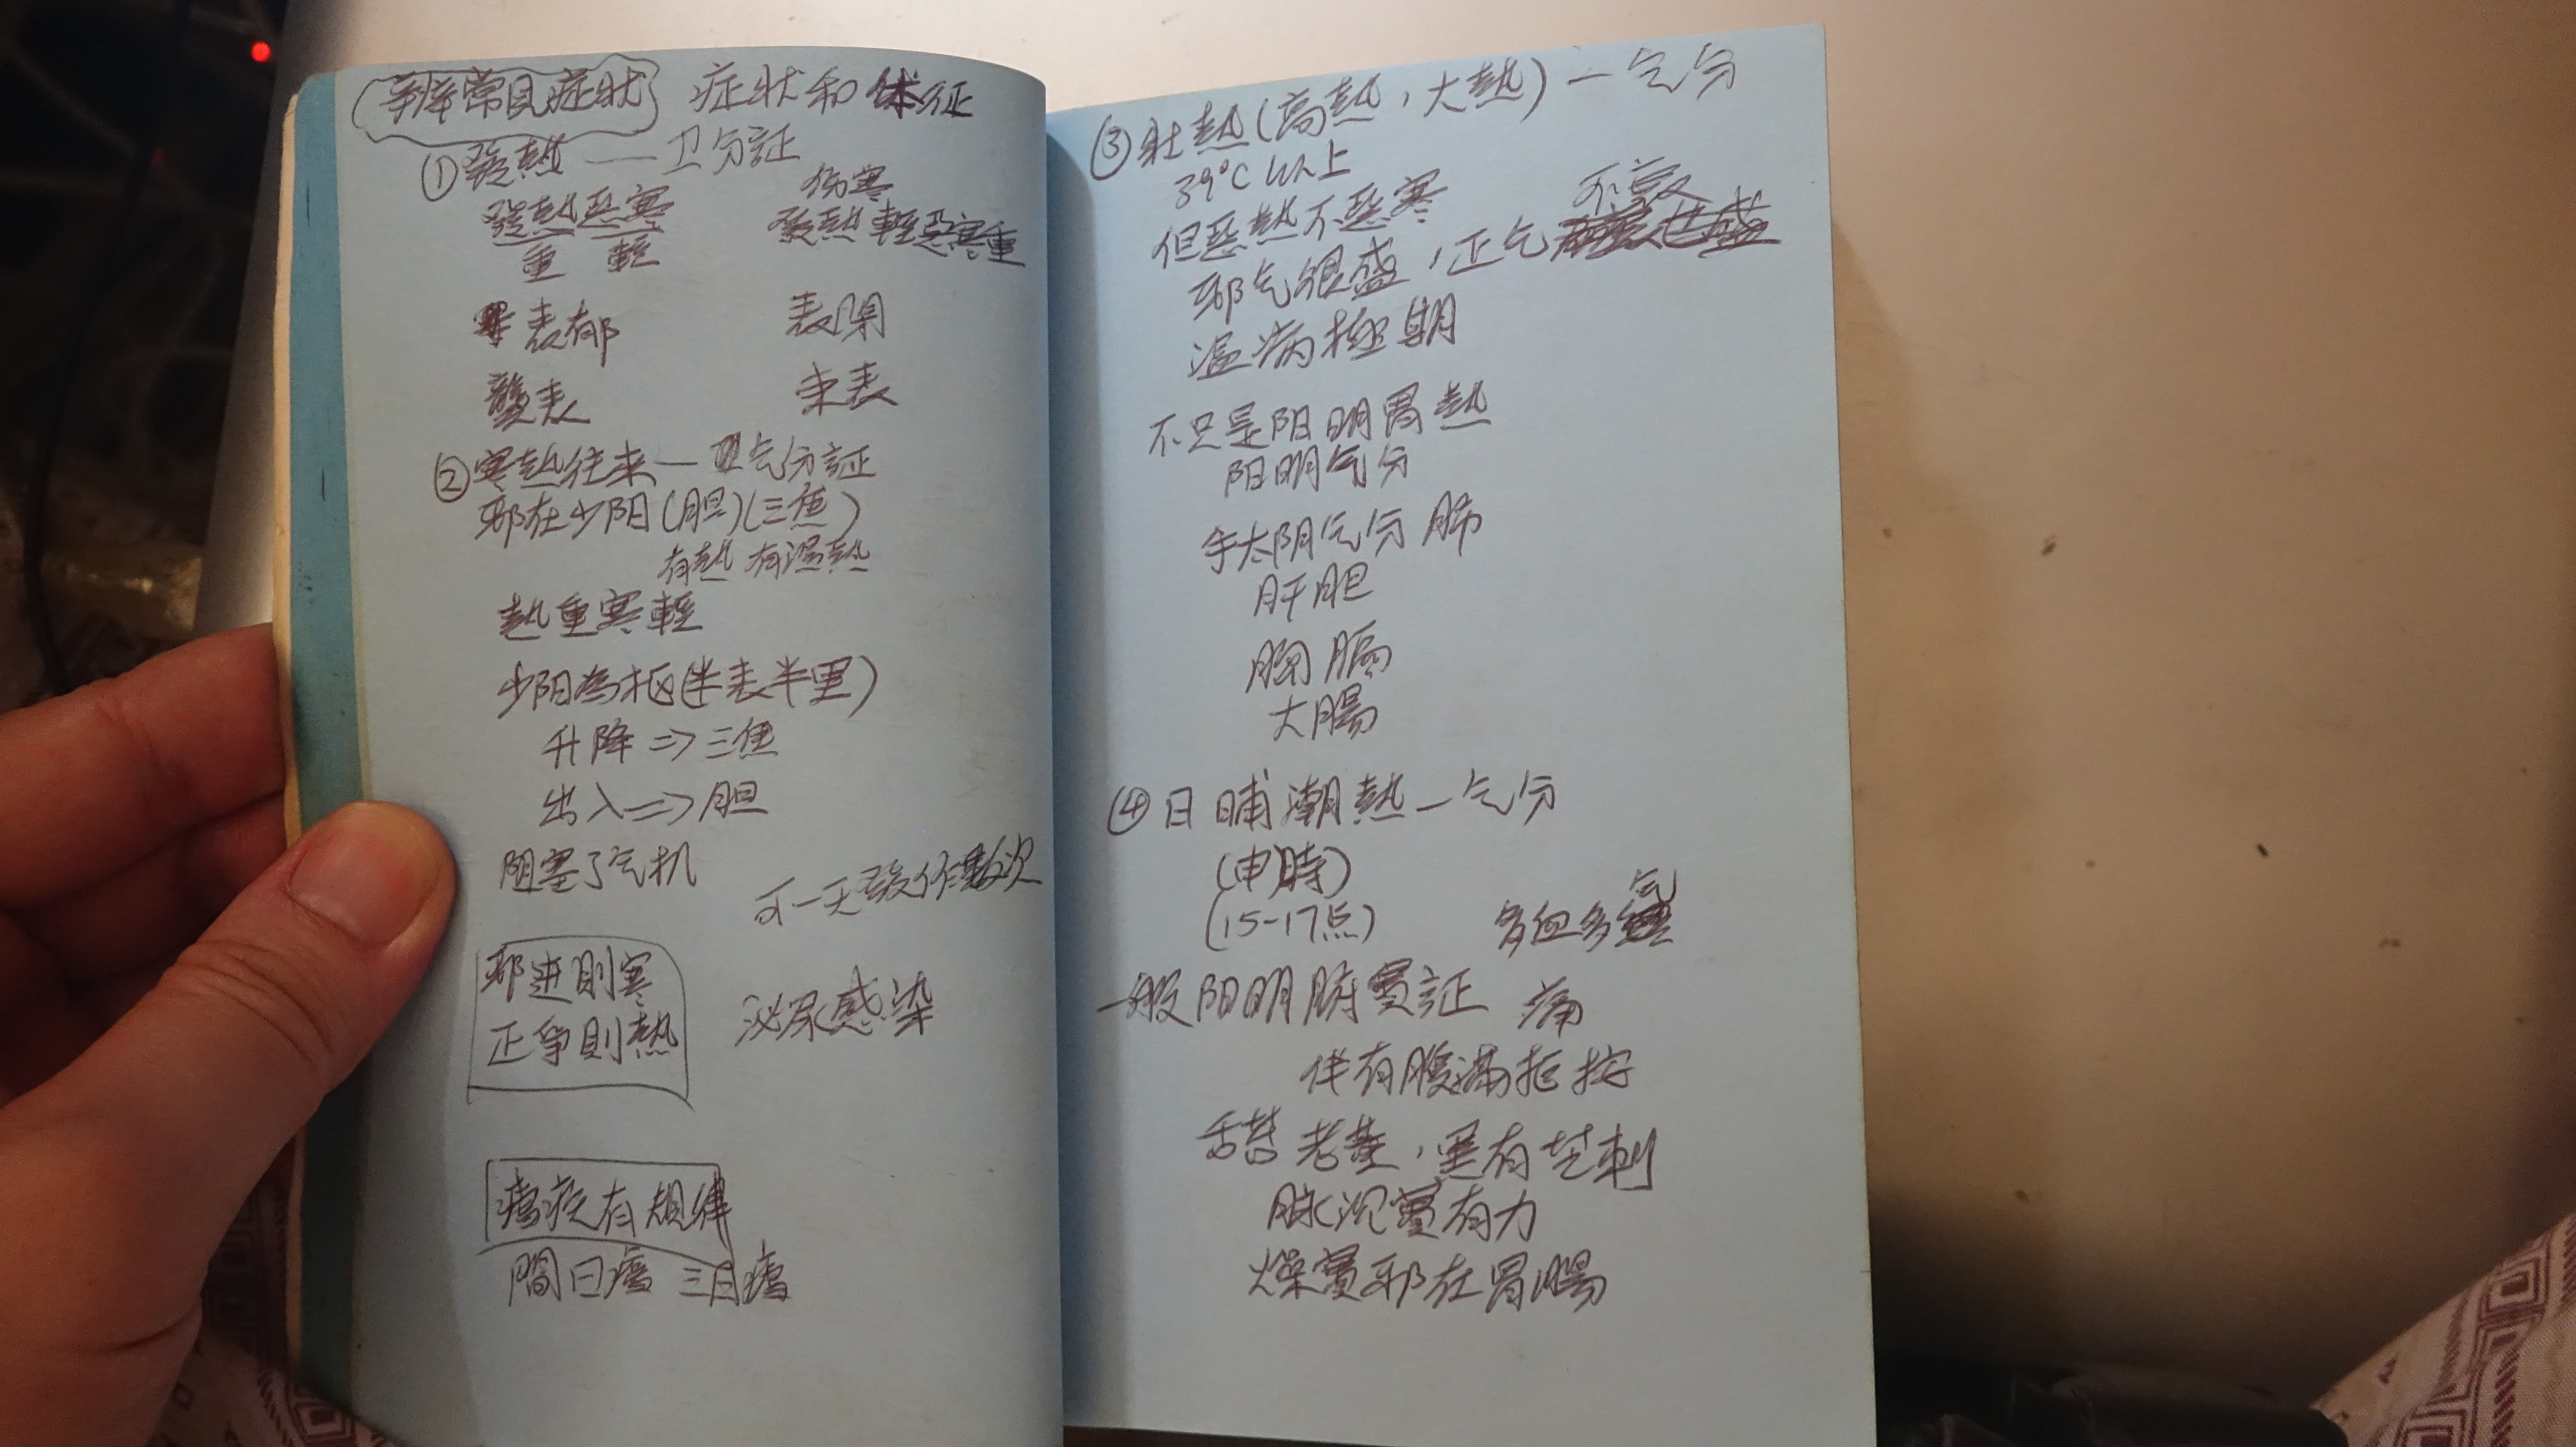 辨常見症狀 症狀和体征
①發熱——卫分証
伤寒
發熱惡寒 發熱輕惡寒重
重 輕
表郁 表閉
襲表 束表
②寒熱往来—气分証
邪在少阳(胆)(三焦)
有熱 有濕熱
熱重寒輕
少阳為枢(半表半里)
升降=>三焦
出入=>胆
阻塞了气机
可一天發作數次
邪进則寒
正爭則熱
泌尿感染
瘧疾有規律
間日瘧 三日瘧
③壮熱(高熱,大熱)—气分
39°C以上
但惡熱不惡寒
不衰
邪气很盛,正气
温病極期
不只是阳明胃熱
阳明气分
手太阴气分 肺
肝胆
胸膈
大腸
④日晡潮熱—气分
(申時)
(15-17点)
多血多气
一般阳明腑實証
痛
伴有腹满拒按
舌苔老黄,黑有芒刺
脉沉實有力
燥實邪在胃腸